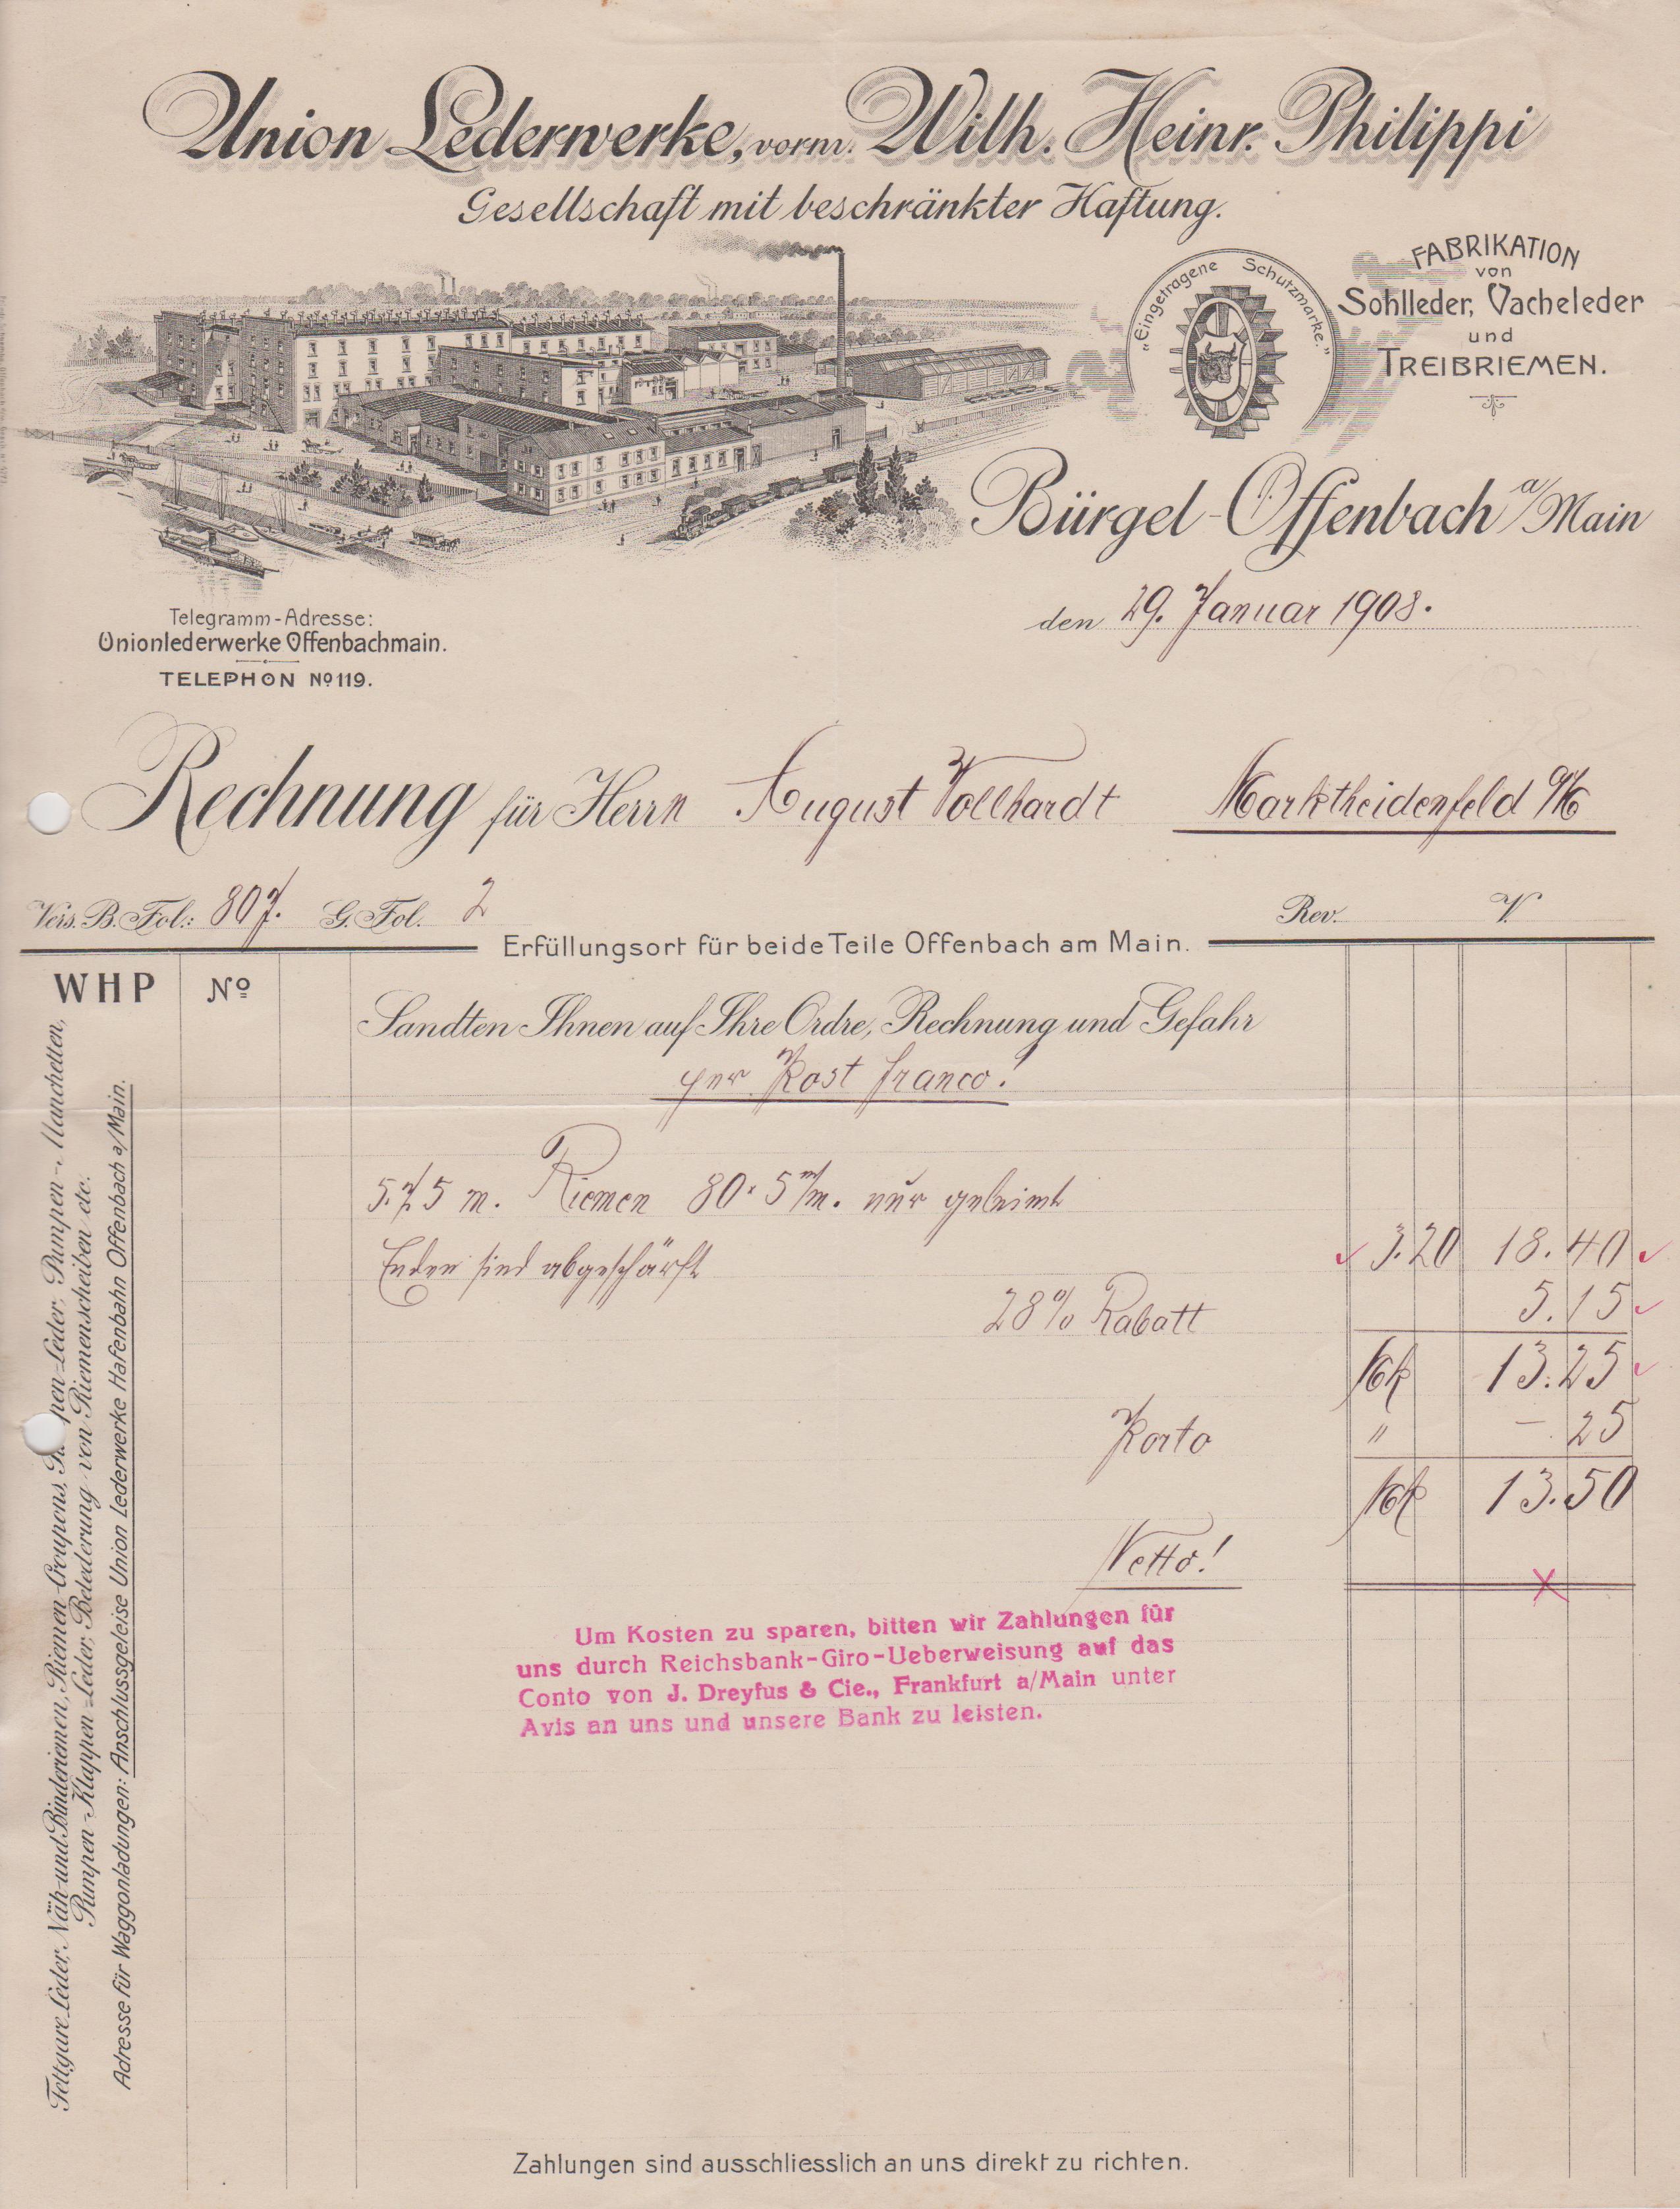 Union Lederwerke, vorm. Wilh. Heinr. Philippi
Gesellschaft mit beschränkter Haftung.
"Eingetragene Schutzmarke."
FABRIKATION
von
Sohlleder, Vacheleder
und
TREIBRIEMEN.
Bürgel-Offenbach a/Main
den 29. Januar 1908.
Telegramm-Adresse:
Unionlederwerke Offenbachmain.
TELEPHON No 119.
Rechnung für Herrn August Vollhardt Marktheidenfeld a/M
Vers. B. Fol.: 807. G. Fol. 2 Rev. V.
Erfüllungsort für beide Teile Offenbach am Main.
WHP No
Sandten Ihnen auf Ihre Ordre, Rechnung und Gefahr
per Post franco!
5.75 m. Riemen 80 x 5 m/m. nur geleimt
Enden sind abgeschärft 3.20 18.40
28% Rabatt 5.15
Mk 13.25
Porto " – 25
Mk 13.50
Netto!
Um Kosten zu sparen, bitten wir Zahlungen für
uns durch Reichsbank-Giro-Ueberweisung auf das
Conto von J. Dreyfus & Cie., Frankfurt a/Main unter
Avis an uns und unsere Bank zu leisten.
Fettgare Leder, Näh- und Binderiemen, Riemen-Croupons, pen-Leder, Pumpen-Manchetten,
Pumpen-Klappen-Leder, Belederung von Riemenscheiben etc.
Adresse für Waggonladungen: Anschlussgeleise Union Lederwerke Hafenbahn Offenbach a/Main.
Zahlungen sind ausschliesslich an uns direkt zu richten.